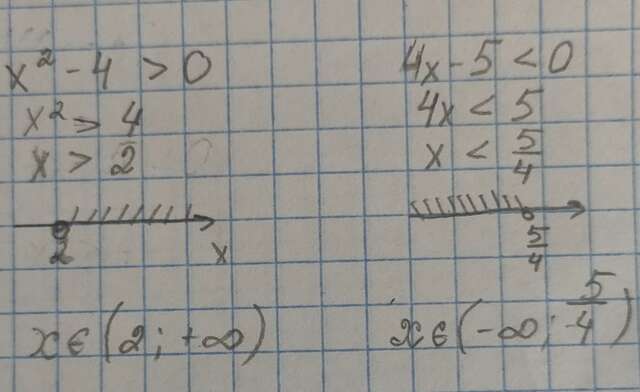 x² - 4 > 0
x² > 4
x > 2
2
x
x ∈ (2; +∞)
4x - 5 < 0
4x < 5
x < 5/4
5/4
x ∈ (-∞; 5/4)